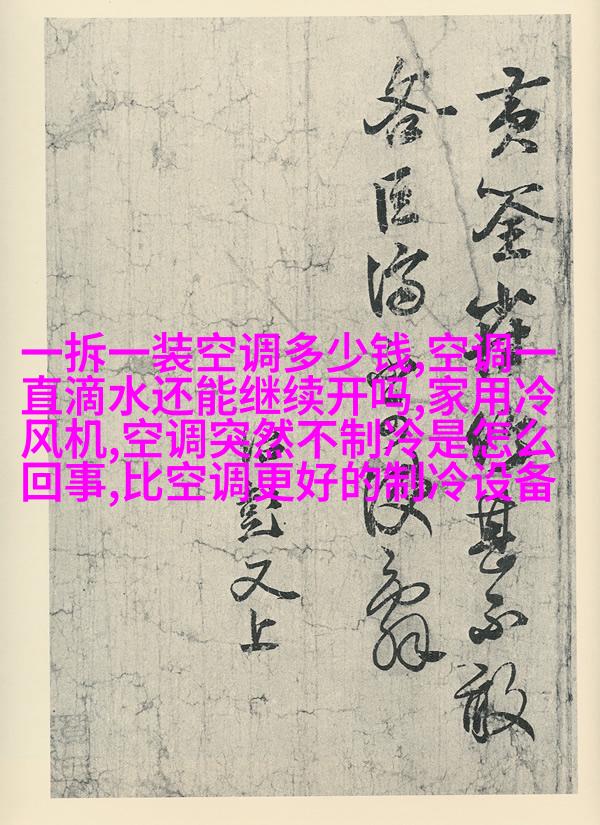 一拆一装空调多少钱,空调一
直滴水还能继续开吗,家用冷
风机,空调突然不制冷是怎么
回事,比空调更好的制冷设备
黄筌雀甚不敢
又上